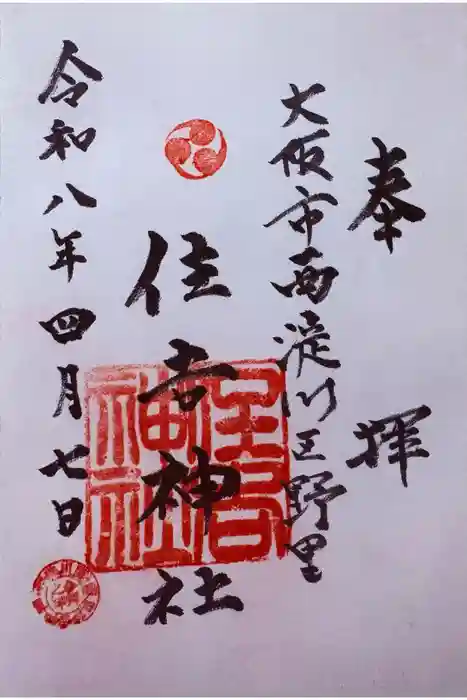 奉拝
大阪市西淀川区野里
住吉神社
住吉神社
令和八年四月七日